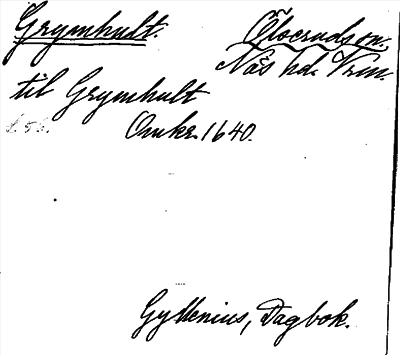 Grymhult. Ölseruds sn.
Näs hd. Vrm.
til Grymhult
s. 56. Omkr. 1640.
Gyllenius, Dagbok.